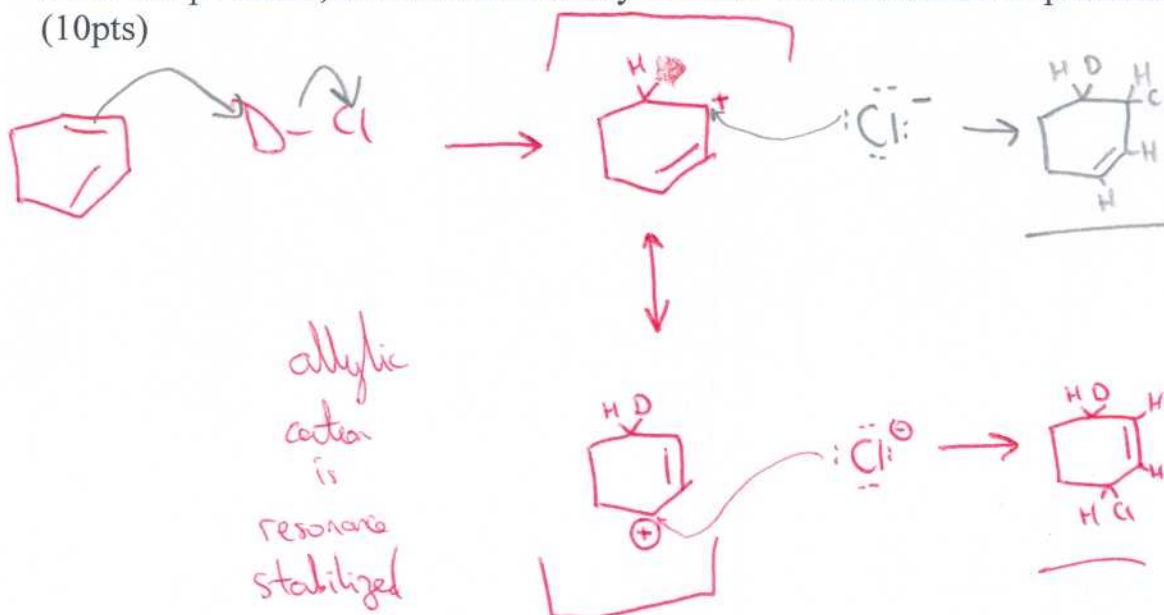 (10pts)
H
D – Cl
+
:Cl: –
H D
H
C
H
H
allylic
cation
is
resonance
stabilized
H D
+
:Cl: –
H D
H
H
H Cl